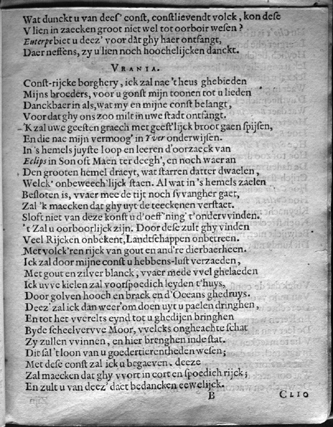 Wat dunckt u van dees' const, constlievendt volck, kon dese
V lien in zaecken groot niet wel tot oorboir wesen?
Euterpe biet u deez' voor dat ghy haer ontfangt,
Daer neffens, zy u lien noch hoochelijcken danckt.
VRANIA.
Const-rijcke borghery, ick zal nae 't heus ghebieden
Mijns broeders, voor u gonst mijn toonen tot u lieden
Danckbaer in als, wat my en mijne const belangt,
Voor dat ghy ons zoo milt in uwe stadt ontfangt.
'K zal uwe geesten graech met geest'lijck broot gaen spijsen,
En die nae mijn vermoog' in Yver onderwijsen.
In 's hemels juyste loop en leeren d'oorzaeck van
Eclips in Son oft Maen ter deegh', en noch waer an
Den grooten hemel draeyt, wat starren datter dwaelen,
Welck' onbeweech'lijck staen. Al wat in 's hemels zaelen
Besloten is, vvaer mee de tijt noch svvangher gaet,
Zal 'k maecken dat ghy uyt de teeckenen verstaet.
Sloft niet van deze konst u d'oeff'ning' t'ondervvinden.
't Zal u oorboorlijck zijn. Door dese zult ghy vinden
Veel Rijcken onbekent, Landtschappen onbetreen.
Met volck'ren rijck van gout en andre dierbaerheen.
Ick zal door mijne const u hebbens-lust verzaeden,
Met gout en zilver blanck, vvaer mede vvel ghelaeden
Ick uvve kielen zal voorspoedich leyden t'huys,
Door golven hooch en brack en d'Oceans ghedruys.
Deez' zal ick dan weer om doen uyt u paelen dringhen,
En tot het vverelts eynd tot u ghedijen bringhen
By de scheelvervve Moor, vvelcks ongheachte schat
Zy zullen vvinnen, en hier brenghen inde stat.
Dit sal 't loon van u goedertierentheden wesen;
Met dese const zal ick u begaeven. deeze
Zal maecken dat ghy vvort in cort en spoedich rijck;
En zult u van deez' daet bedancken eewelijck.
B CLIO